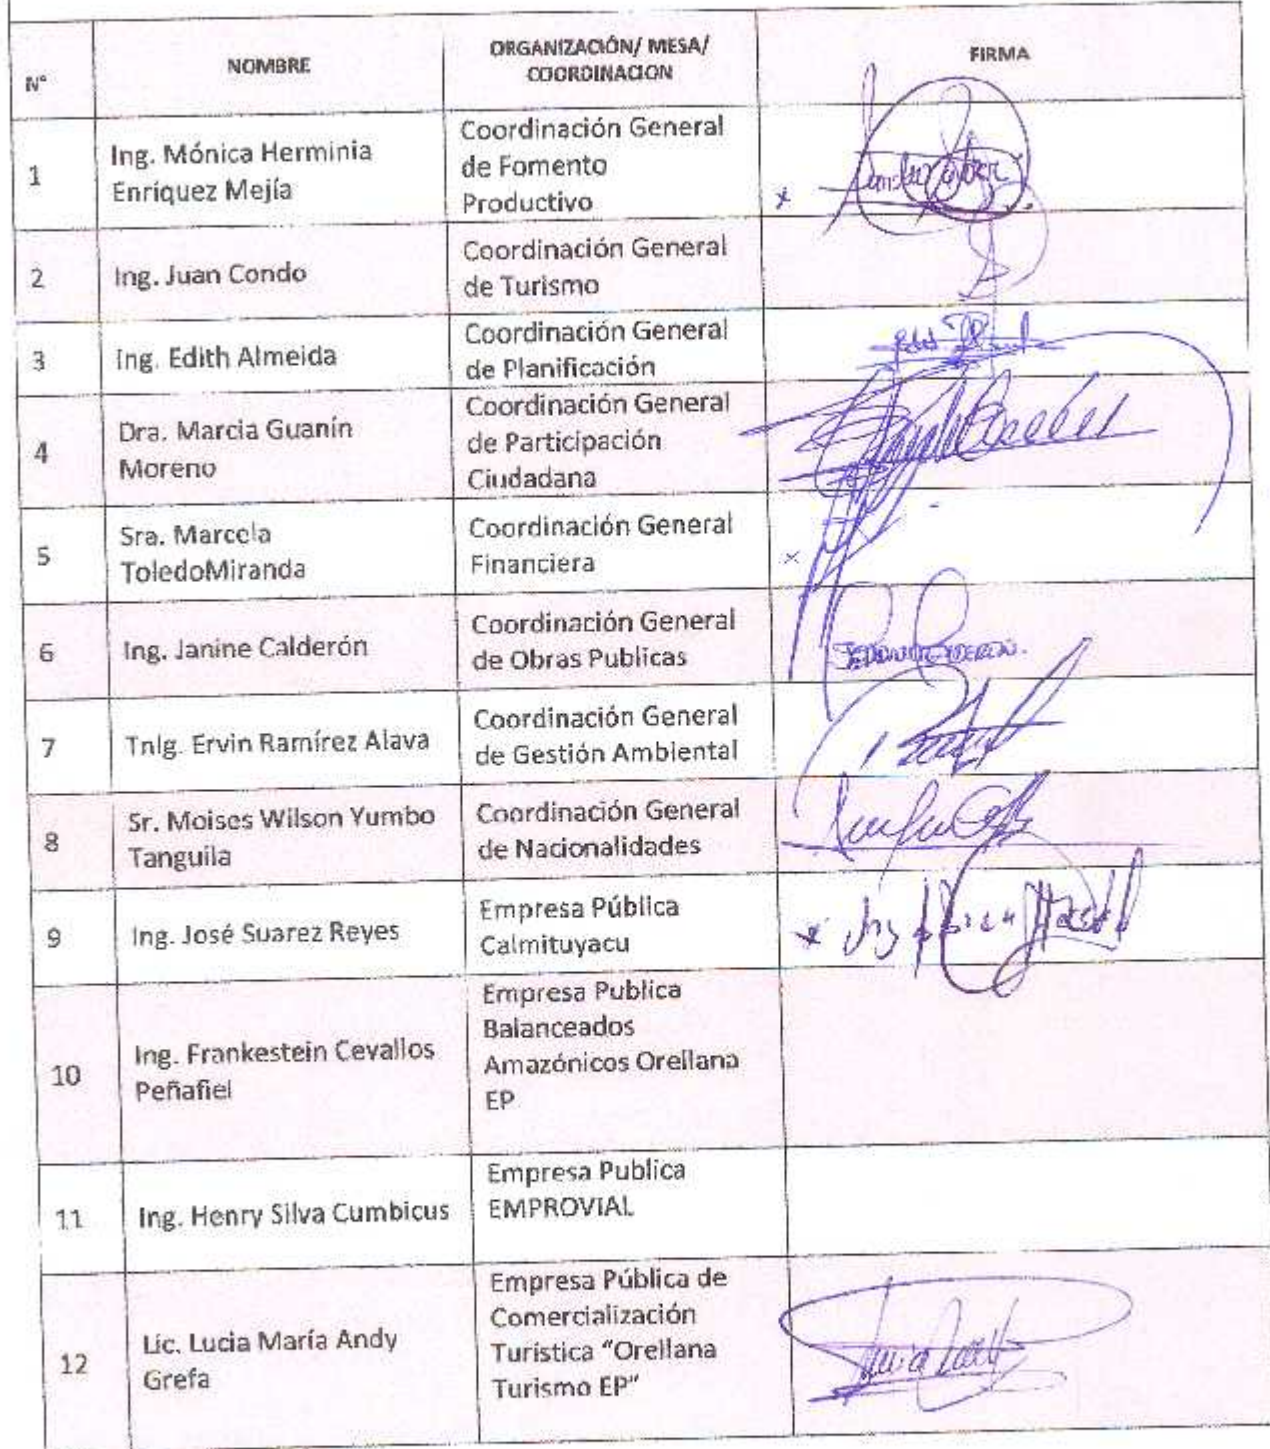 N°
NOMBRE
ORGANIZACIÓN/ MESA/
COORDINACION
FIRMA
1
Ing. Mónica Herminia
Enríquez Mejía
Coordinación General
de Fomento
Productivo
2
Ing. Juan Condo
Coordinación General
de Turismo
3
Ing. Edith Almeida
Coordinación General
de Planificación
4
Dra. Marcia Guanín
Moreno
Coordinación General
de Participación
Ciudadana
5
Sra. Marcela
ToledoMiranda
Coordinación General
Financiera
6
Ing. Janine Calderón
Coordinación General
de Obras Publicas
7
Tnlg. Ervin Ramírez Alava
Coordinación General
de Gestión Ambiental
8
Sr. Moises Wilson Yumbo
Tanguila
Coordinación General
de Nacionalidades
9
Ing. José Suarez Reyes
Empresa Pública
Calmituyacu
10
Ing. Frankestein Cevallos
Peñafiel
Empresa Publica
Balanceados
Amazónicos Orellana
EP
11
Ing. Henry Silva Cumbicus
Empresa Publica
EMPROVIAL
12
Lic. Lucia María Andy
Grefa
Empresa Pública de
Comercialización
Turistica "Orellana
Turismo EP"